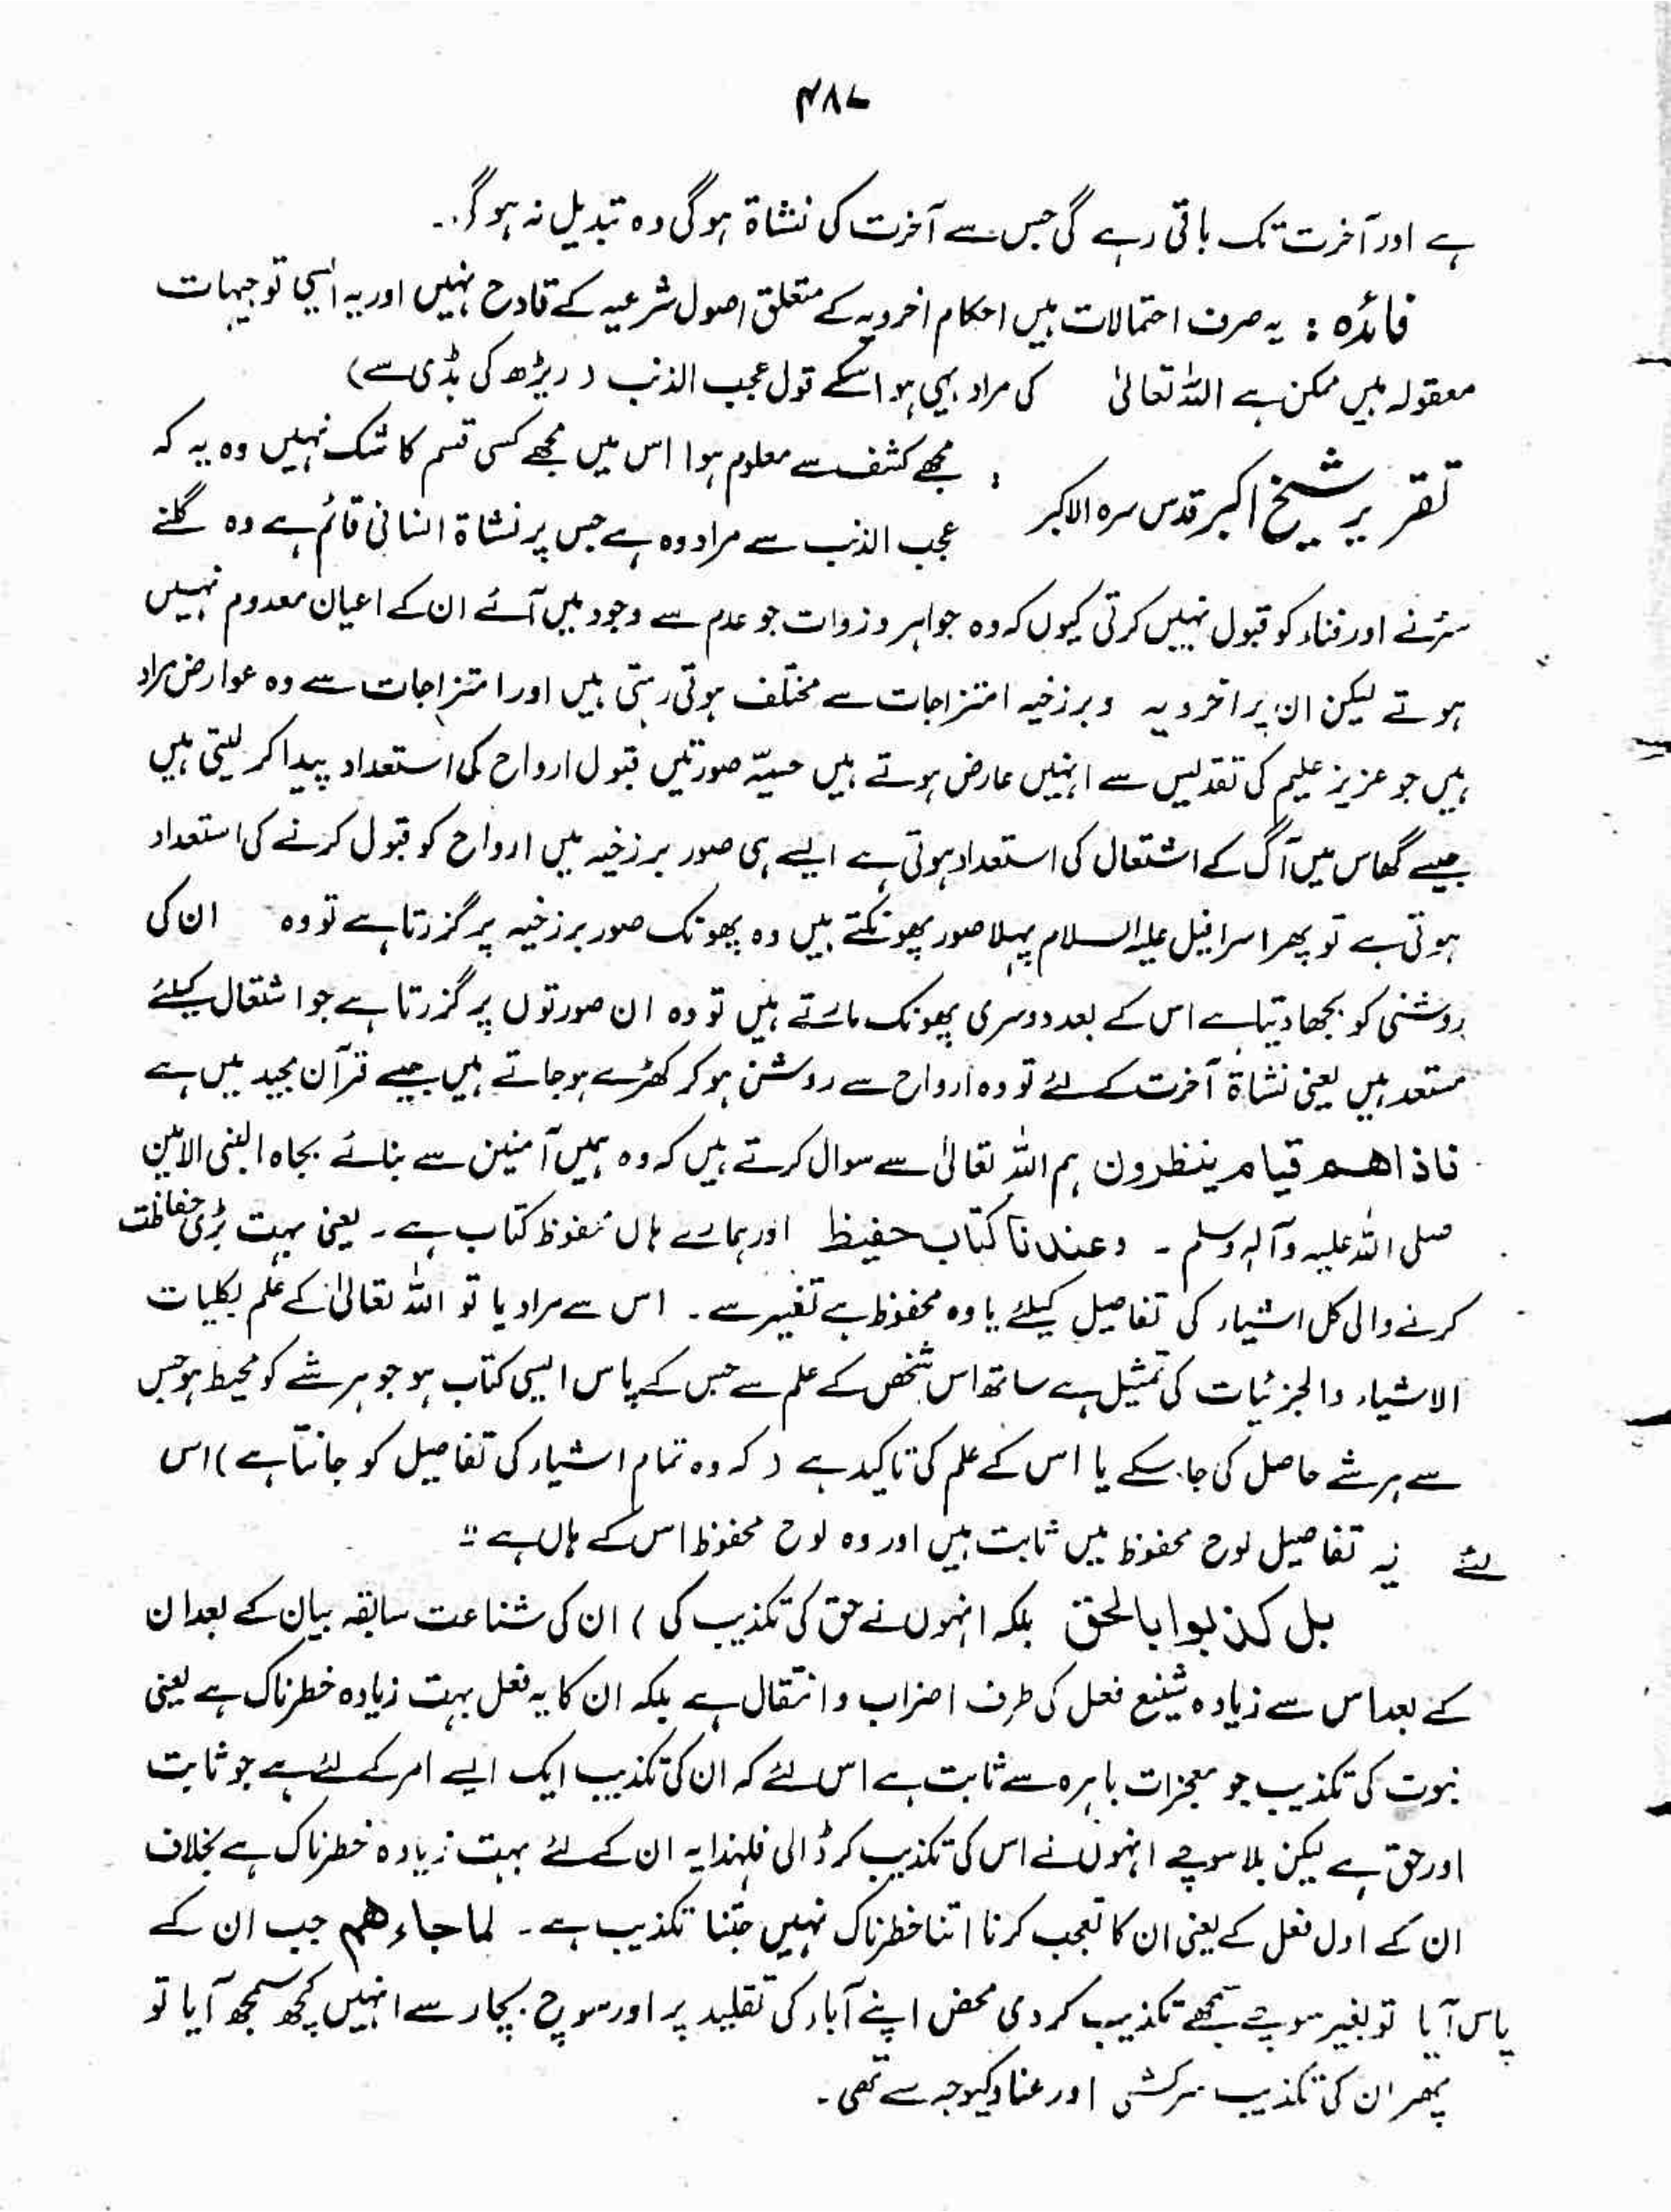 ۴۸۷
ہے اور آخرت تک باقی رہے گی جس سے آخرت کی نشاۃ ہوگی وہ تبدیل نہ ہوگی۔
فائدہ : یہ صرف احتمالات ہیں احکام اخرویہ کے متعلق اصول شرعیہ کے قادح نہیں اور یہ ایسی توجیہات
معقولہ ہیں ممکن ہے اللہ تعالیٰ کی مراد یہی ہو اسکے قول عجب الذنب ( ریڑھ کی ہڈی سے )
تقریر شیخ اکبر قدس سرہ الاکبر : مجھے کشف سے معلوم ہوا اس میں مجھے کسی قسم کا شک نہیں وہ یہ کہ
عجب الذنب سے مراد وہ ہے جس پر نشاۃ انسانی قائم ہے وہ گلنے
سڑنے اور فناء کو قبول نہیں کرتی کیوں کہ وہ جواہر و ذوات جو عدم سے وجود میں آئے ان کے اعیان معدوم نہیں
ہوتے لیکن ان پر اخرویہ و برزخیہ امتزاجات سے مختلف ہوتی رہتی ہیں اور امتزاجات سے وہ عوارض مراد
ہیں جو عزیز علیم کی تقدیس سے انہیں عارض ہوتے ہیں حسیّہ صورتیں قبول ارواح کی استعداد پیدا کر لیتی ہیں
جیسے گھاس میں آگ کے اشتعال کی استعداد ہوتی ہے ایسے ہی صور برزخیہ میں ارواح کو قبول کرنے کی استعداد
ہوتی ہے تو پھر اسرافیل علیہ السلام پہلا صور پھونکتے ہیں وہ پھونک صور برزخیہ پر گزرتا ہے تو وہ ان کی
روشنی کو بجھا دیتا ہے اس کے بعد دوسری پھونک مارتے ہیں تو وہ ان صورتوں پر گزرتا ہے جو اشتعال کیلئے
مستعد ہیں یعنی نشاۃ آخرت کے لئے تو وہ ارواح سے روشن ہوکر کھڑے ہوجاتے ہیں جیسے قرآن مجید میں ہے
فاذا ھم قیام ینظرون ہم اللہ تعالیٰ سے سوال کرتے ہیں کہ وہ ہمیں آمنین سے بنائے بجاہ النبی الامین
صلی اللہ علیہ وآلہ وسلم ۔ وعندنا کتاب حفیظ اور ہمارے ہاں محفوظ کتاب ہے ۔ یعنی بہت بڑی حفاظت
کرنے والی کل اشیاء کی تفاصیل کیلئے یا وہ محفوظ ہے تغیر سے ۔ اس سے مراد یا تو اللہ تعالیٰ کے علم بکلیات
الاشیاء والجزئیات کی تمثیل ہے ساتھ اس شخص کے علم سے جس کے پاس ایسی کتاب ہو جو ہر شے کو محیط ہو جس
سے ہر شے حاصل کی جا سکے یا اس کے علم کی تاکید ہے ( کہ وہ تمام اشیاء کی تفاصیل کو جانتا ہے ) اس
لئے یہ تفاصیل لوح محفوظ میں ثابت ہیں اور وہ لوح محفوظ اس کے ہاں ہے ۔
بل کذبوا بالحق بلکہ انہوں نے حق کی تکذیب کی ) ان کی شناعت سابقہ بیان کے بعد ان
کے بعد اس سے زیادہ شنیع فعل کی طرف اضراب و انتقال ہے بلکہ ان کا یہ فعل بہت زیادہ خطرناک ہے یعنی
نبوت کی تکذیب جو معجزات باہرہ سے ثابت ہے اس لئے کہ ان کی تکذیب ایک ایسے امر کے لئے ہے جو ثابت
اور حق ہے لیکن بلا سوچے انہوں نے اس کی تکذیب کر ڈالی فلہٰذا یہ ان کے لئے بہت زیادہ خطرناک ہے بخلاف
ان کے اول فعل کے یعنی ان کا تعجب کرنا اتنا خطرناک نہیں جتنا تکذیب ہے ۔ لما جاءھم جب ان کے
پاس آیا تو بغیر سوچے سمجھے تکذیب کر دی محض اپنے آباء کی تقلید پر اور سوچ بچار سے انہیں کچھ سمجھ آیا تو
پھر ان کی تکذیب سرکشی اور عناد کیوجہ سے تھی ۔